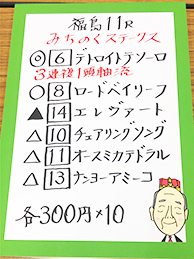 福島11R
みちのくステークス
◎6 デトロイトテソーロ
3連複1頭軸流
○8 ロードベイリーフ
▲14 エレヴァート
△10 チュアリングソング
△11 オースミカテドラル
△13 ナンヨーアミーコ
各300円×10